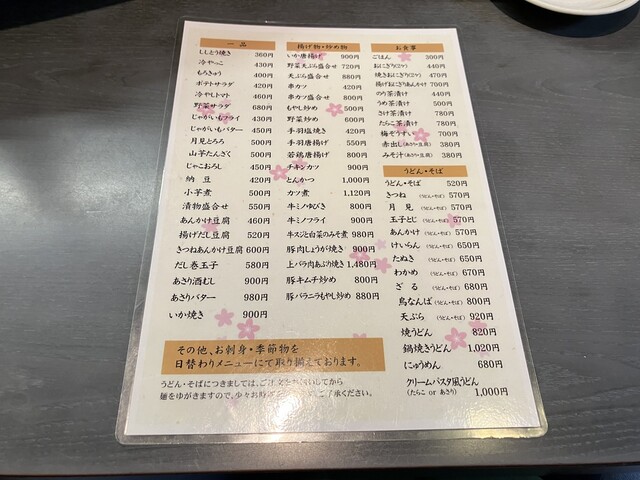 一品
ししとう焼き 360円
冷やっこ 430円
もろきゅう 400円
ポテトサラダ 420円
冷やしトマト 460円
野菜サラダ 680円
じゃがいもフライ 430円
じゃがいもバター 450円
月見とろろ 500円
山芋たんざく 500円
じゃこおろし 450円
納豆 420円
小芋煮 500円
漬物盛合せ 550円
あんかけ豆腐 460円
揚げだし豆腐 520円
きつねあんかけ豆腐 600円
だし巻玉子 580円
あさり酒むし 900円
あさりバター 980円
いか焼き 900円
揚げ物・炒め物
いか唐揚げ 900円
野菜天ぷら盛合せ 720円
天ぷら盛合せ 880円
串カツ 420円
串カツ盛合せ 800円
もやし炒め 500円
野菜炒め 600円
手羽塩焼き 420円
手羽唐揚げ 550円
若鶏唐揚げ 800円
チキンカツ 900円
とんかつ 1,000円
カツ煮 1,120円
牛ミノゆびき 800円
牛ミノフライ 900円
牛スジと白菜のみそ煮 980円
豚肉しょうが焼き 900円
上バラ肉あぶり焼き 1,480円
豚キムチ炒め 800円
豚バラニラもやし炒め 880円
お食事
ごはん 300円
おにぎり(2ケ) 440円
焼きおにぎり(2ケ) 470円
揚げおにぎりあんかけ 700円
のり茶漬け 440円
うめ茶漬け 500円
さけ茶漬け 780円
たらこ茶漬け 780円
梅ぞうすい 700円
赤出し(あさりor豆腐) 380円
みそ汁(あさりor豆腐) 380円
うどん・そば
うどん・そば 520円
きつね (うどん・そば) 570円
月見 (うどん・そば) 570円
玉子とじ (うどん・そば) 570円
あんかけ (うどん・そば) 570円
けいらん (うどん・そば) 650円
たぬき (うどん・そば) 650円
わかめ (うどん・そば) 670円
ざる (うどん・そば) 680円
鳥なんば (うどん・そば) 800円
天ぷら (うどん・そば) 920円
焼うどん 820円
鍋焼きうどん 1,020円
にゅうめん 680円
クリームパスタ風うどん
(たらこ or あさり) 1,000円
その他、お刺身・季節物を
日替わりメニューにて取り揃えております。
うどん・そばにつきましては、ご注文を
麺をゆがきますので、少々お時 ご了承ください。